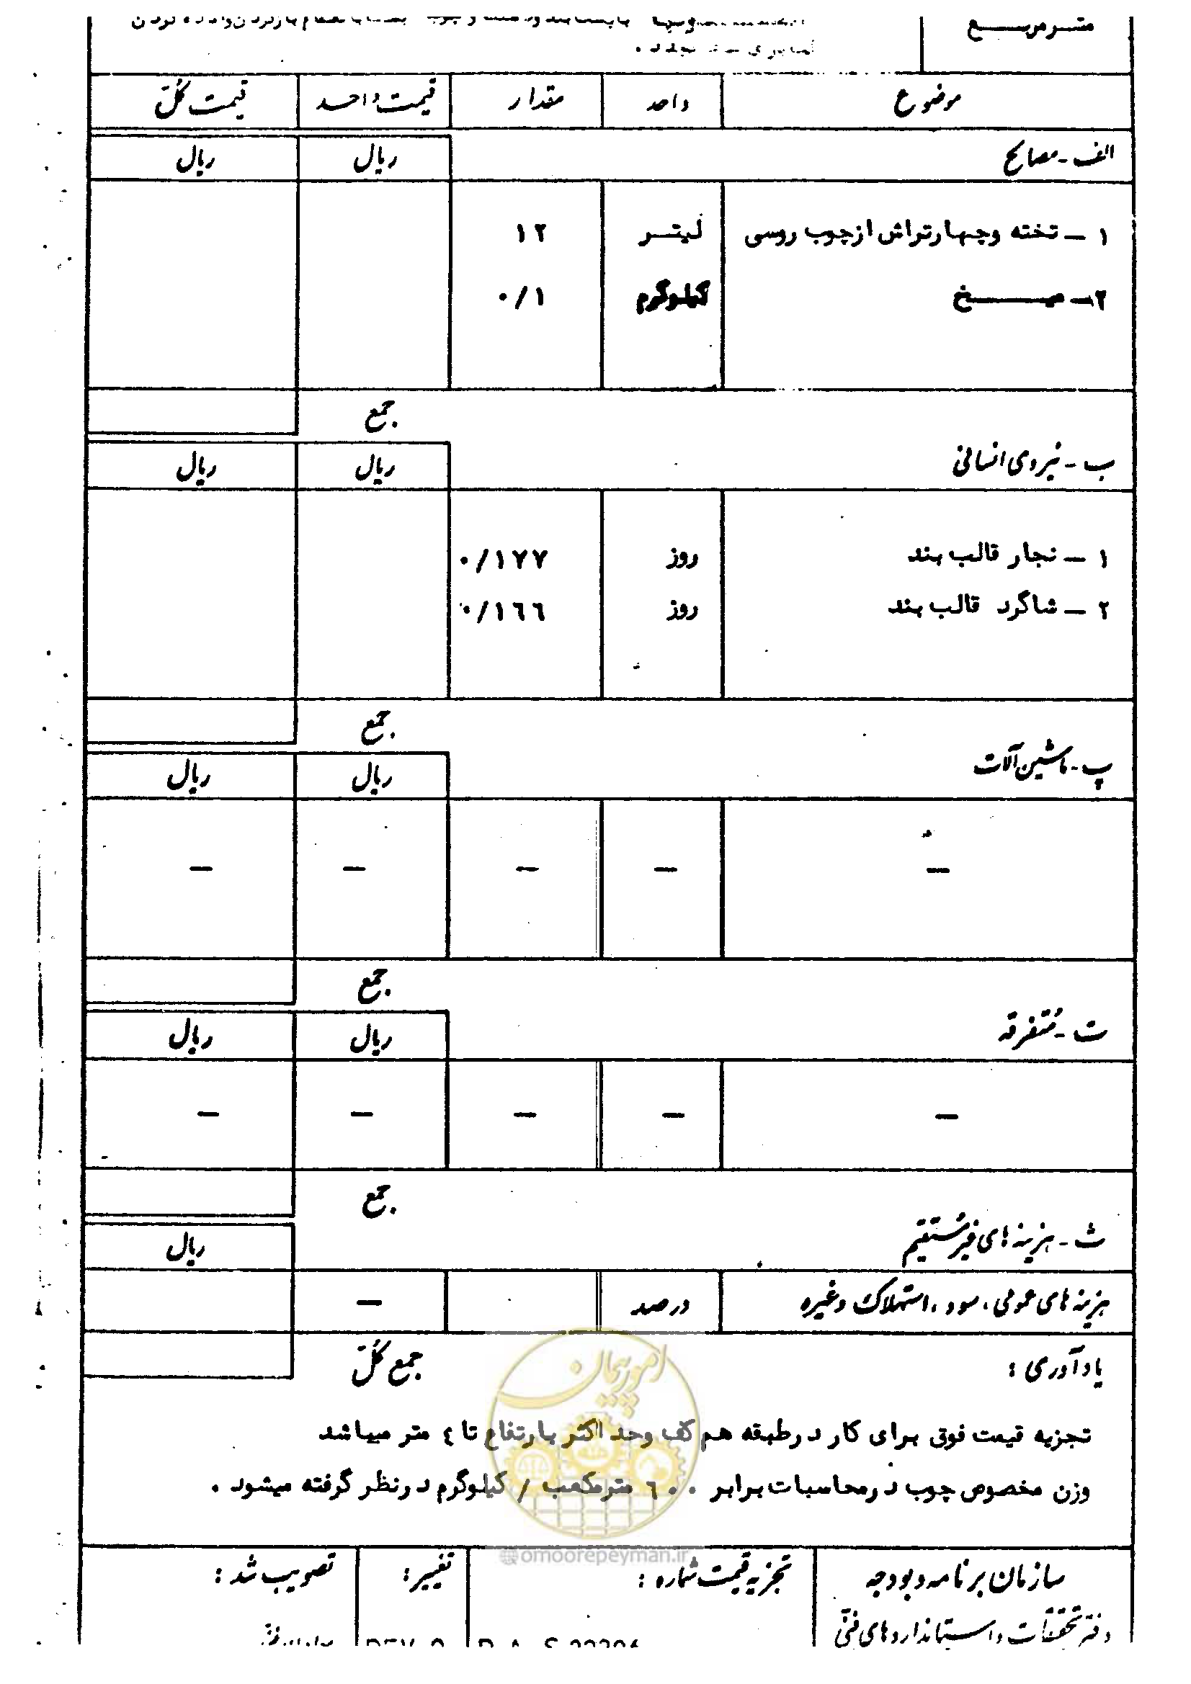 متر مربع
موضوع واحد مقدار قیمت واحد قیمت کل
الف - مصالح ریال ریال
۱ - تخته وچهارتراش ازچوب روسی لیتر ۱۲
۲- میخ کیلوگرم ۰/۱
جمع
ب - نیروی انسانی ریال ریال
۱ - نجار قالب بند روز ۰/۱۷۷
۲ - شاگرد قالب بند روز ۰/۱٦٦
جمع
پ - ماشین آلات ریال ریال
— — — — —
جمع
ت - متفرقه ریال ریال
— — — — —
جمع
ث - هزینه های غیرمستقیم ریال
هزینه های عمومی، سود، استهلاک وغیره درصد —
یادآوری : جمع کل
تجزیه قیمت فوق برای کار درطبقه هم کف وحد اکثر بارتفاع تا ٤ متر میباشد
وزن مخصوص چوب درمحاسبات برابر ٦۰۰ مترمکعب / کیلوگرم درنظر گرفته میشود .
امور پیمان
@omoorepeyman.ir
سازمان برنامه وبودجه تجزیه قیمت شماره : تغییر: تصویب شد :
دفتر تحقیقات واستانداردهای فنی